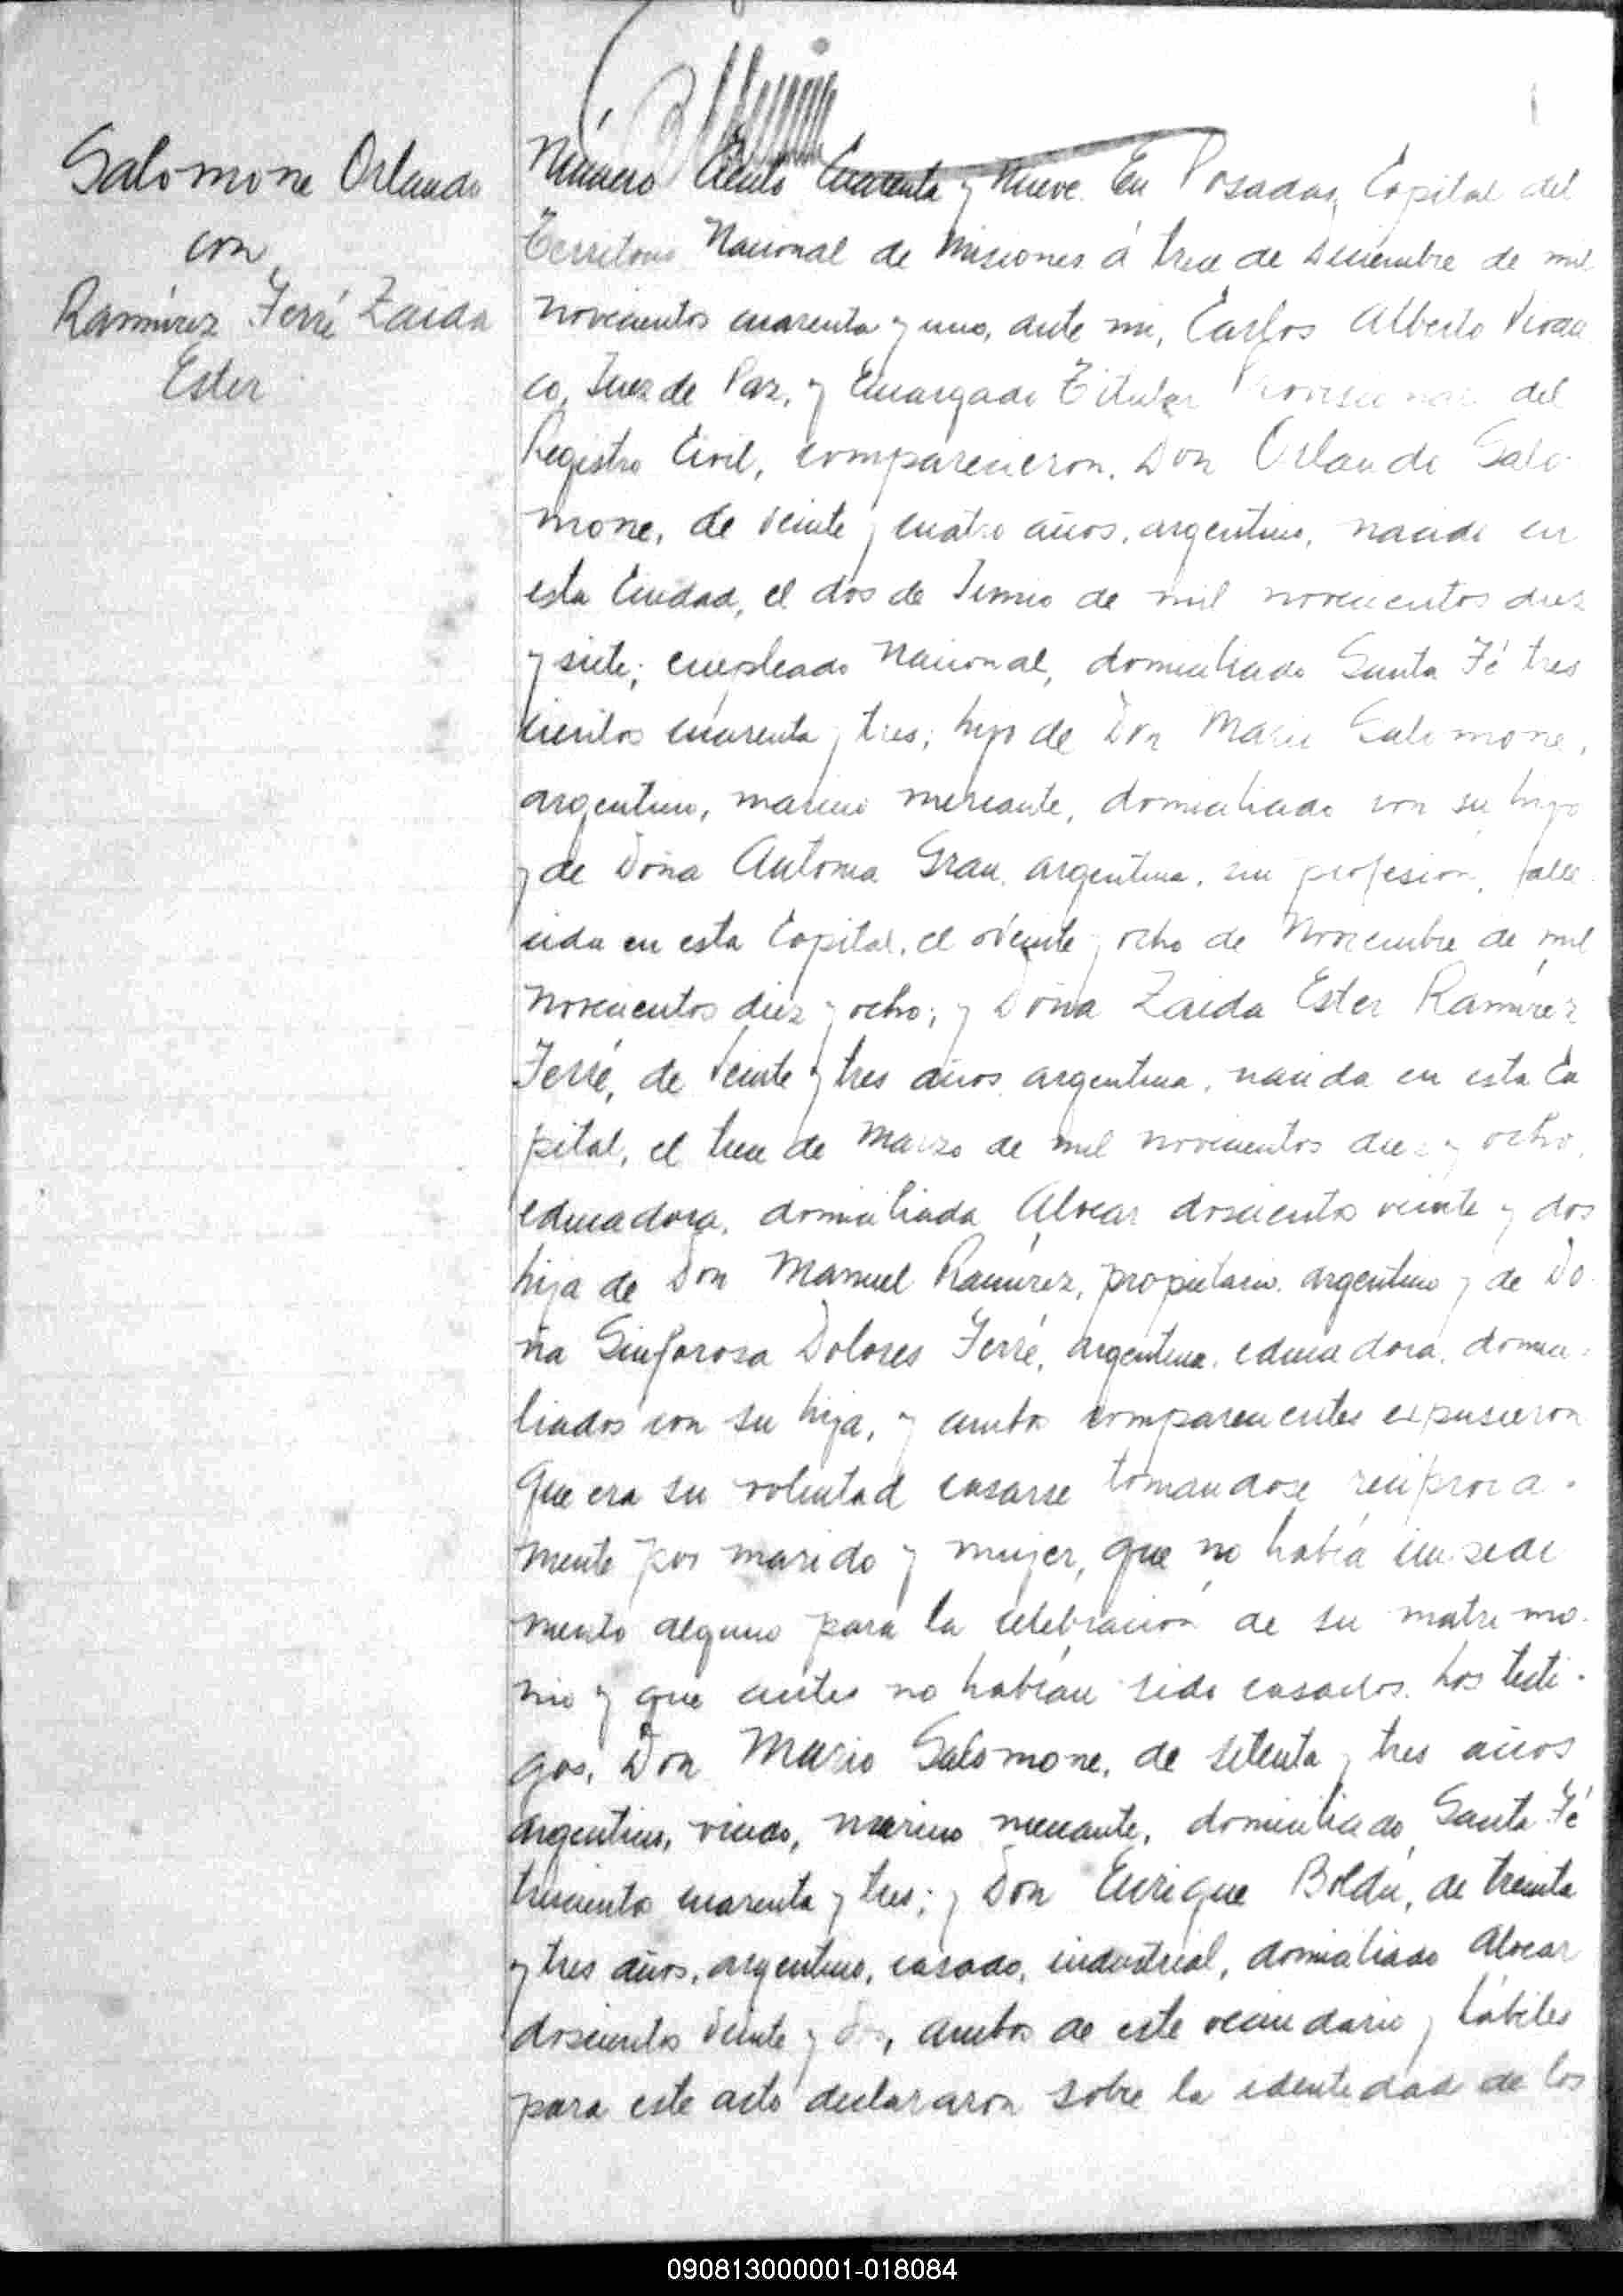 Salomone Orlando
con
Ramírez Ferré Zaida
Ester
Número Ciento Cuarenta y Nueve. En Posadas, Capital del
Territorio Nacional de Misiones á trece de Diciembre de mil
novecientos cuarenta y uno, ante mi, Carlos Alberto
co, Juez de Paz, y Encargado Titular Provisional del
Registro Civil, comparecieron, Don Orlando Salo-
mone, de veinte y cuatro años, argentino, nacido en
esta Ciudad, el dos de Junio de mil novecientos diez
y siete; empleado Nacional, domiciliado Santa Fé tres
cientos cuarenta y tres; hijo de Don Mario Salomone,
argentino, marino mercante, domiciliado con su hijo
y de Doña Antonia Grau, argentina, sin profesión, falle
cida en esta Capital, el veinte y ocho de Noviembre de mil
novecientos diez y ocho; y Doña Zaida Ester Ramírez
Ferré, de veinte y tres años, argentina, nacida en esta Ca
pital, el trece de Marzo de mil novecientos diez y ocho,
educadora, domiciliada Alvear doscientos veinte y dos
hija de Don Manuel Ramírez, propietario, argentino y de Do-
ña Sinforosa Dolores Ferré, argentina, educadora, domici-
liados con su hija, y ambos comparecientes expusieron
Que era su voluntad casarse tomandose reciproca-
mente por marido y mujer, que no había impedi
mento alguno para la celebración de su matrimo-
nio y que antes no habían sido casados. Los testi-
gos, Don Mario Salomone, de setenta y tres años
argentino, viudo, marino mercante, domiciliado Santa Fé
trescientos cuarenta y tres; y Don Enrique Boldú, de treinta
y tres años, argentino, casado, industrial, domiciliado Alvear
doscientos veinte y dos, ambos de este vecindario y hábiles
para este acto declararon sobre la identidad de los
090813000001-018084